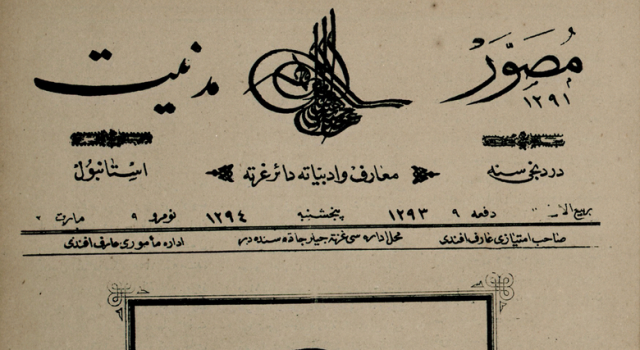 مصوّر مدنيت
١٢٩١
دردنجی سنه معارف و ادبیاته دائر غزته استانبول
ربیع الاول دفعه ٩ ١٢٩٣ پنجشنبه ١٢٩٤ نومرو ٩ مارت
صاحب امتیازی عارف افندی محل اداره سی غزته جیلر جاده سنده در اداره مأموری عارف افندی